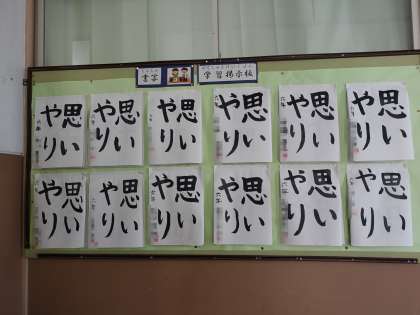 書写
学習掲示板
思いやり
思いやり
思いやり
思いやり
思いやり
思いやり
思いやり
思いやり
思いやり
思いやり
思いやり
思いやり